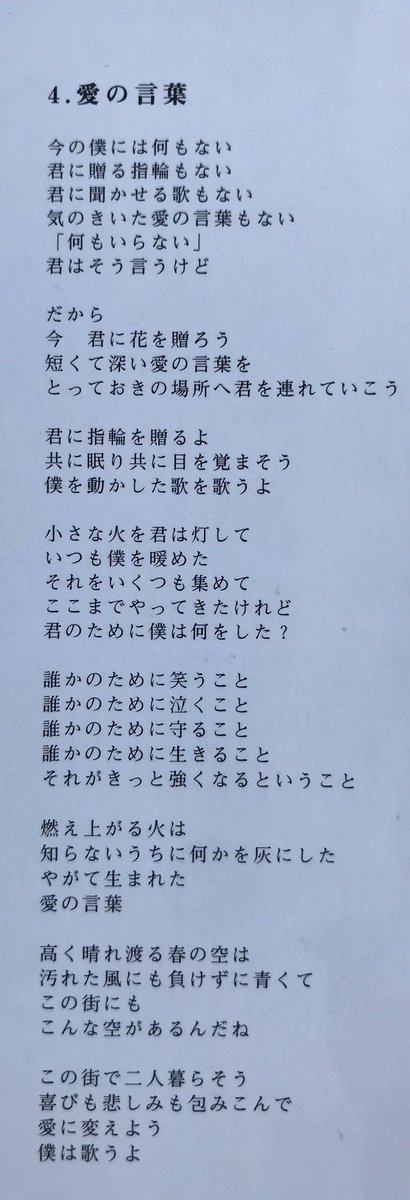 4.愛の言葉
今の僕には何もない
君に贈る指輪もない
君に聞かせる歌もない
気のきいた愛の言葉もない
「何もいらない」
君はそう言うけど
だから
今　君に花を贈ろう
短くて深い愛の言葉を
とっておきの場所へ君を連れていこう
君に指輪を贈るよ
共に眠り共に目を覚まそう
僕を動かした歌を歌うよ
小さな火を君は灯して
いつも僕を暖めた
それをいくつも集めて
ここまでやってきたけれど
君のために僕は何をした？
誰かのために笑うこと
誰かのために泣くこと
誰かのために守ること
誰かのために生きること
それがきっと強くなるということ
燃え上がる火は
知らないうちに何かを灰にした
やがて生まれた
愛の言葉
高く晴れ渡る春の空は
汚れた風にも負けずに青くて
この街にも
こんな空があるんだね
この街で二人暮らそう
喜びも悲しみも包みこんで
愛に変えよう
僕は歌うよ